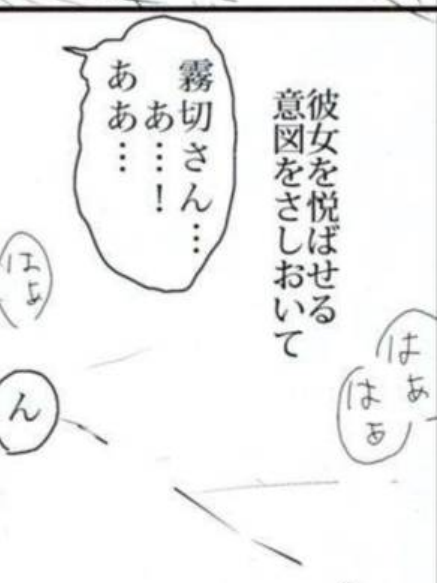 彼女を悦ばせる
意図をさしおいて
霧切さん…
あ…！
ああ…
はぁ
はぁ
はぁ
ん